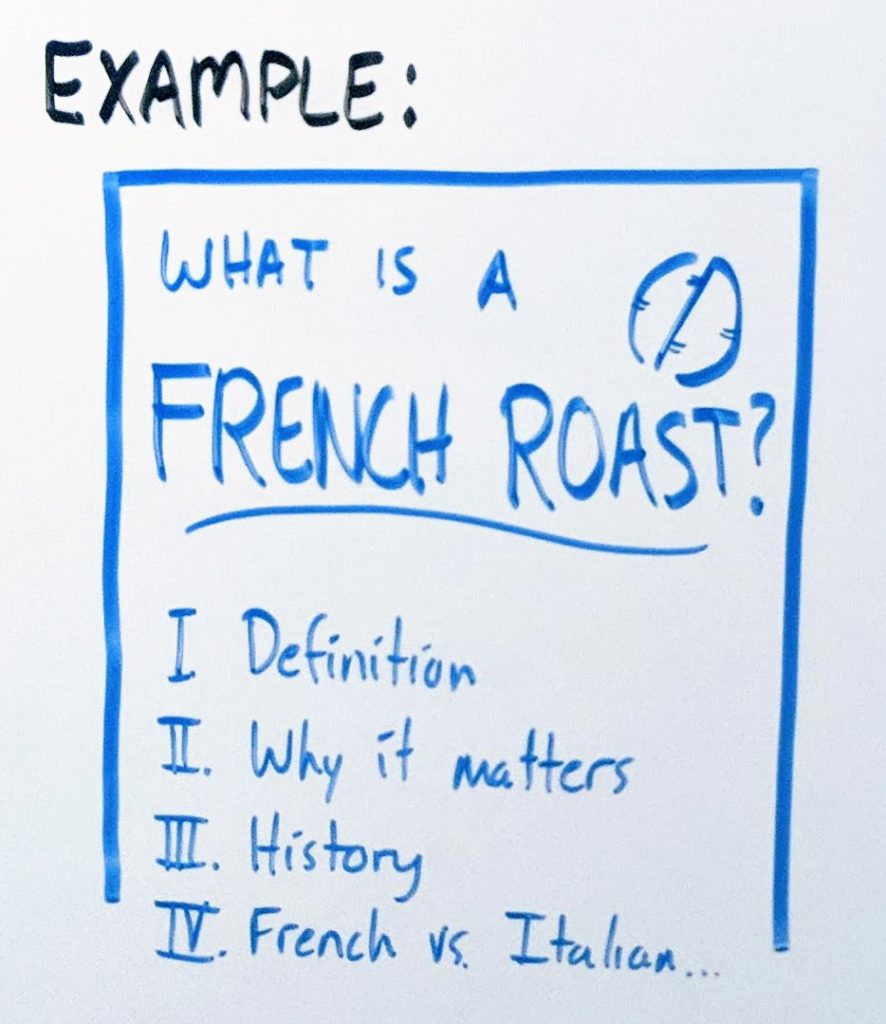 EXAMPLE:
WHAT IS A
FRENCH ROAST?
I Definition
II. Why it matters
III. History
IV. French vs. Italian...